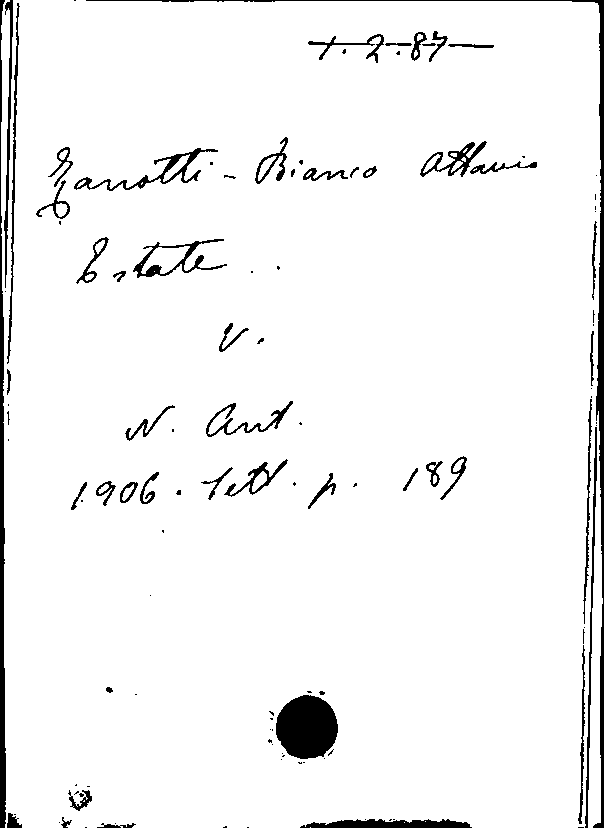 1.2.87
Zanotti-Bianco Ottavio
Estate..
V.
N. Ant.
1906. Sett. p. 189